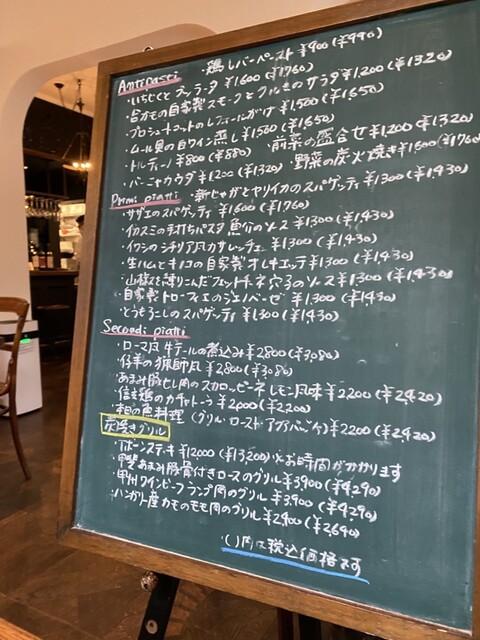 Antipasti ・鶏レバーペースト ¥900(¥990)
・いちじくとブッラータ ¥1600(¥1760)
自家製スモークと サラダ ¥1,200(¥1320)
・プロシュートコットのレフォールがけ ¥1500(¥1650)
・ムール貝の白ワイン蒸し ¥1,500(¥1,650) ・前菜の盛合せ ¥1,200(¥1320)
・トルティーノ ¥800(¥880) ・野菜の炭火焼き ¥1600(¥1760)
・バーニャカウダ ¥1200(¥1320)
Primi piatti ・新じゃがとヤリイカのスパゲッティ ¥1300(¥1,430)
・サザエのスパゲッティ ¥1600(¥1760)
・イカスミの手打ちパスタ 魚介のソース ¥1300(¥1,430)
・イワシのシチリア風カサレッチェ ¥1300(¥1430)
・生ハムとキノコの自家製オレキエッテ ¥1300(¥1430)
練りこんだフェットチーネ 穴子のソース ¥1,300(¥1,430)
・自家製トローフィエのジェノベーゼ ¥1,300(¥1430)
・とうもろこしのスパゲッティ ¥1,300(¥1430)
Secondi piatti
・ローマ風 牛テールの煮込み ¥2800(¥3,080)
・仔羊の猟師風 ¥2800(¥3,080)
・あまみ豚ヒレ肉のスカロッピーネ レモン風味 ¥2200(¥2,420)
・信玄鶏のカチャトーラ ¥2,000(¥2200)
・本日の魚料理(グリル・ロースト・アクアパッツァ) ¥2200(¥2,420)
炭焼きグリル
・Tボーンステーキ ¥12000(¥13200)※お時間がかかります
・甲斐あまみ豚骨付きロースのグリル ¥3900(¥4,290)
・甲州ワインビーフランプ肉のグリル ¥3,900(¥4,290)
・ハンガリー産かものもも肉のグリル ¥2,400(¥2,640)
・( )内は税込価格です